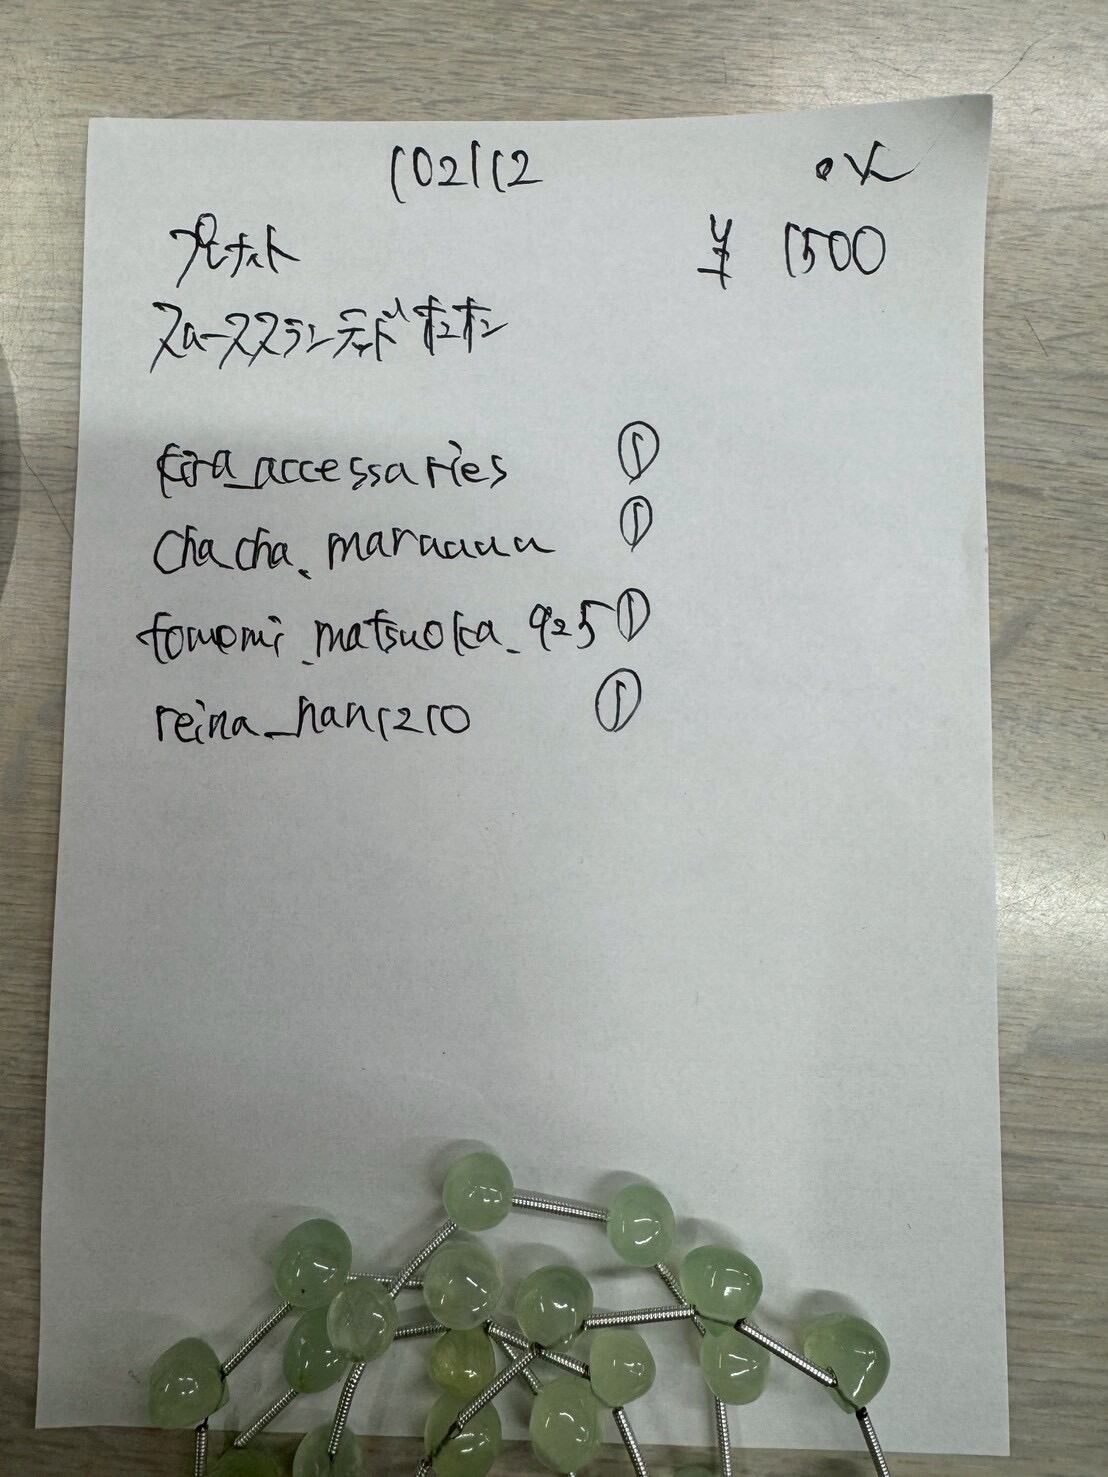 102112 OK
プレナイト ¥ 1500
スムースラウンデッドオニオン
kira_accessaries ①
chacha.maruuuu ①
tomomi.matsuoka.925 ①
reina_han1210 ①